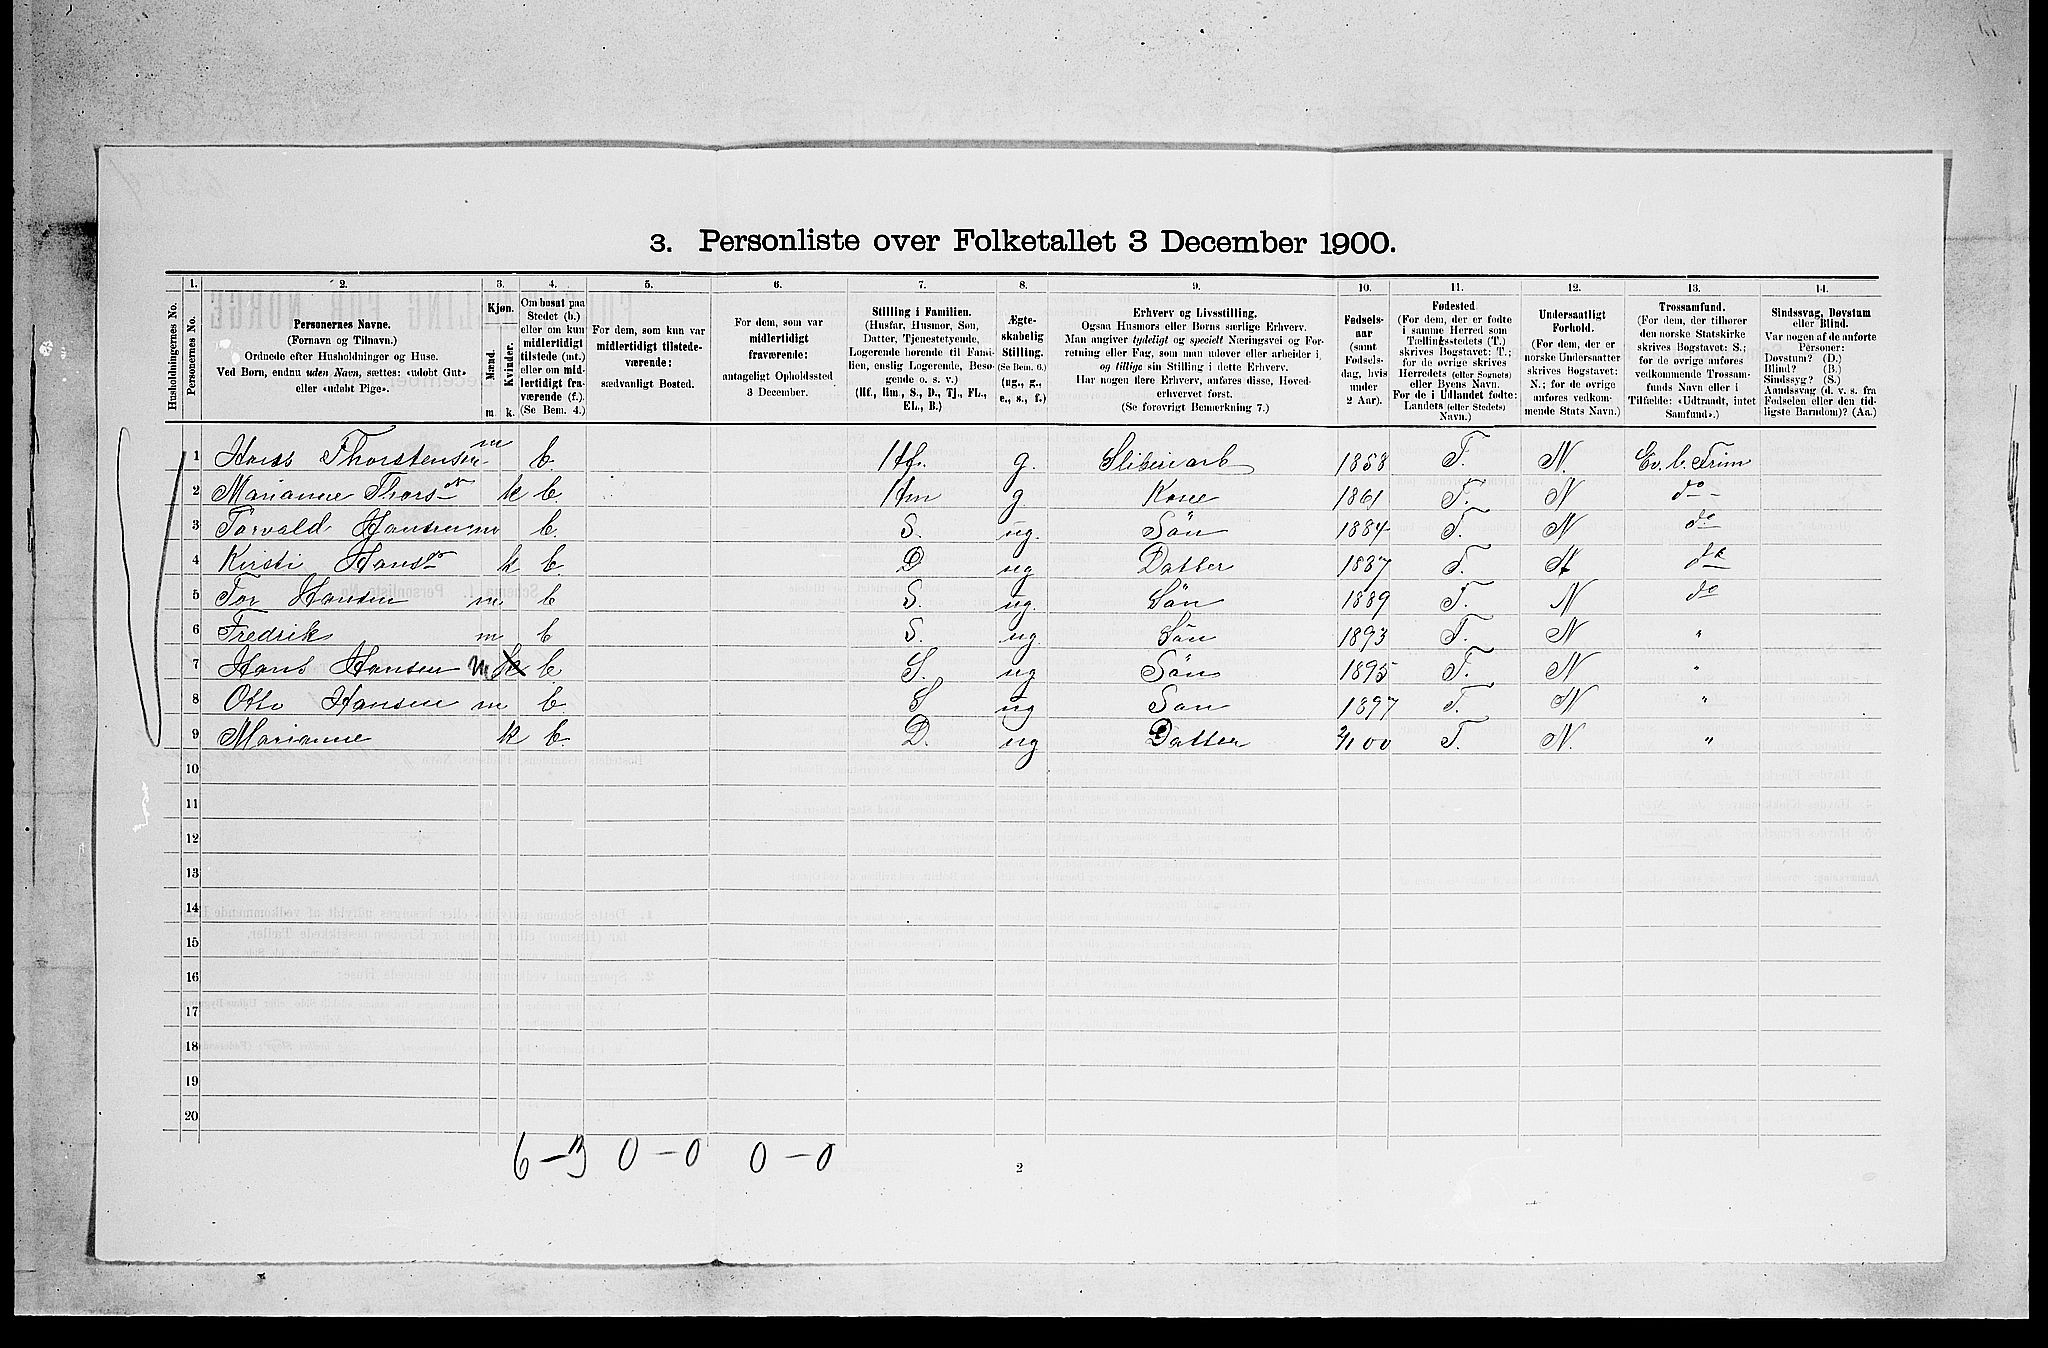 3. Personliste over Folketallet 3 December 1900.
1. 2. 3. 4. 5. 6. 7. 8. 9. 10. 11. 12. 13. 14.
Husholdningernes No.
Personernes No.
Personernes Navne.
(Fornavn og Tilnavn.)
Ordnede efter Husholdninger og Huse.
Ved Børn, endnu uden Navn, sættes: «udøbt Gut»
eller «udøbt Pige».
Kjøn.
Mænd. Kvinder.
m. k.
Om bosat paa
Stedet (b.)
eller om kun
midlertidigt
tilstede (mt.)
eller om mid-
lertidigt fra-
værende (f.)
(Se Bem. 4.)
For dem, som kun var
midlertidigt tilstede-
værende:
sædvanligt Bosted.
For dem, som var
midlertidigt
fraværende:
antageligt Opholdssted
3 December.
Stilling i Familien.
(Husfar, Husmor, Søn,
Datter, Tjenestetyende,
Logerende hørende til Fami-
lien, enslig Logerende, Besø-
gende o. s. v.)
(Hf., Hm., S., D., Tj., FL.,
EL., B.)
Ægte-
skabelig
Stilling.
(Se Bem. 6.)
(ug., g.,
e., s., f.)
Erhverv og Livsstilling.
Ogsaa Husmors eller Børns særlige Erhverv.
Man angiver tydeligt og specielt Næringsvei og For-
retning eller Fag, som man udøver eller arbeider i,
og tillige sin Stilling i dette Erhverv.
Har nogen flere Erhverv, anføres disse, Hoved-
erhvervet først.
(Se forøvrigt Bemærkning 7.)
Fødsels-
aar
(samt
Fødsels-
dag, hvis
under
2 Aar).
Fødested.
(For dem, der er fødte
i samme Herred som
Tællingsstedets (T.)
skrives Bogstavet: T.;
for de øvrige skrives
Herredets (eller Sognets)
eller Byens Navn.
For de i Udlandet fødte:
Landets (eller Stedets)
Navn.)
Undersaatligt
Forhold.
(For dem, der er
norske Undersaatter
skrives Bogstavet:
N.; for de øvrige
anføres vedkom-
mende Stats Navn.)
Trossamfund.
(For dem, der tilhører
den norske Statskirke
skrives Bogstavet: S.;
for de øvrige anføres
vedkommende Trossam-
funds Navn eller i
Tilfælde: «Udtraadt, intet
Samfund».)
Sindssvag, Døvstum
eller Blind.
Var nogen af de anførte
Personer:
Døvstum? (D.)
Blind? (B.)
Sindssyg? (S.)
Aandssvag (d. v. s. fra
Fødselen eller den tid-
ligste Barndom)? (Aa.)
1 Hans Thorstensen m b. Hf. g. Sliberiarb 1858 T. N. Ev. l. Frim
2 Marianne Thorsdt k b. Hm g. Kone 1861 T. N do
3 Torvald Hansen m b. S. ug. Sön 1884 T. N do
4 Kirsti Hansdt k b. D ug Datter 1887 T. N do
5 Tor Hansen m. b S. ug. Sön 1889 T. N do
6 Fredrik m b S. ug. Sön 1893 T. N "
7 Hans Hansen m k b. S. ug Sön 1895 T. N "
8 Otto Hansen m b. S ug Sön 1897 T. N "
9 Marianne k b. D. ug Datter 2/1 00 T. N. "
10
11
12
13
14
15
16
17
18
19
20
6 – 3 0 – 0 0 – 0
2